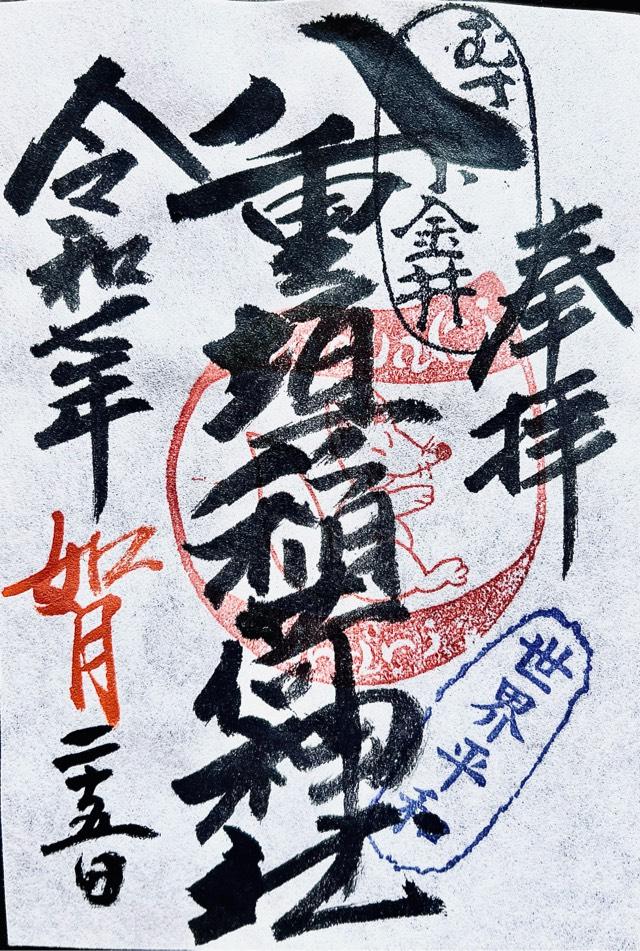 奉拝
むさ
小金井
八重垣稲荷神社
世界平和
令和七年
如月
二十五日